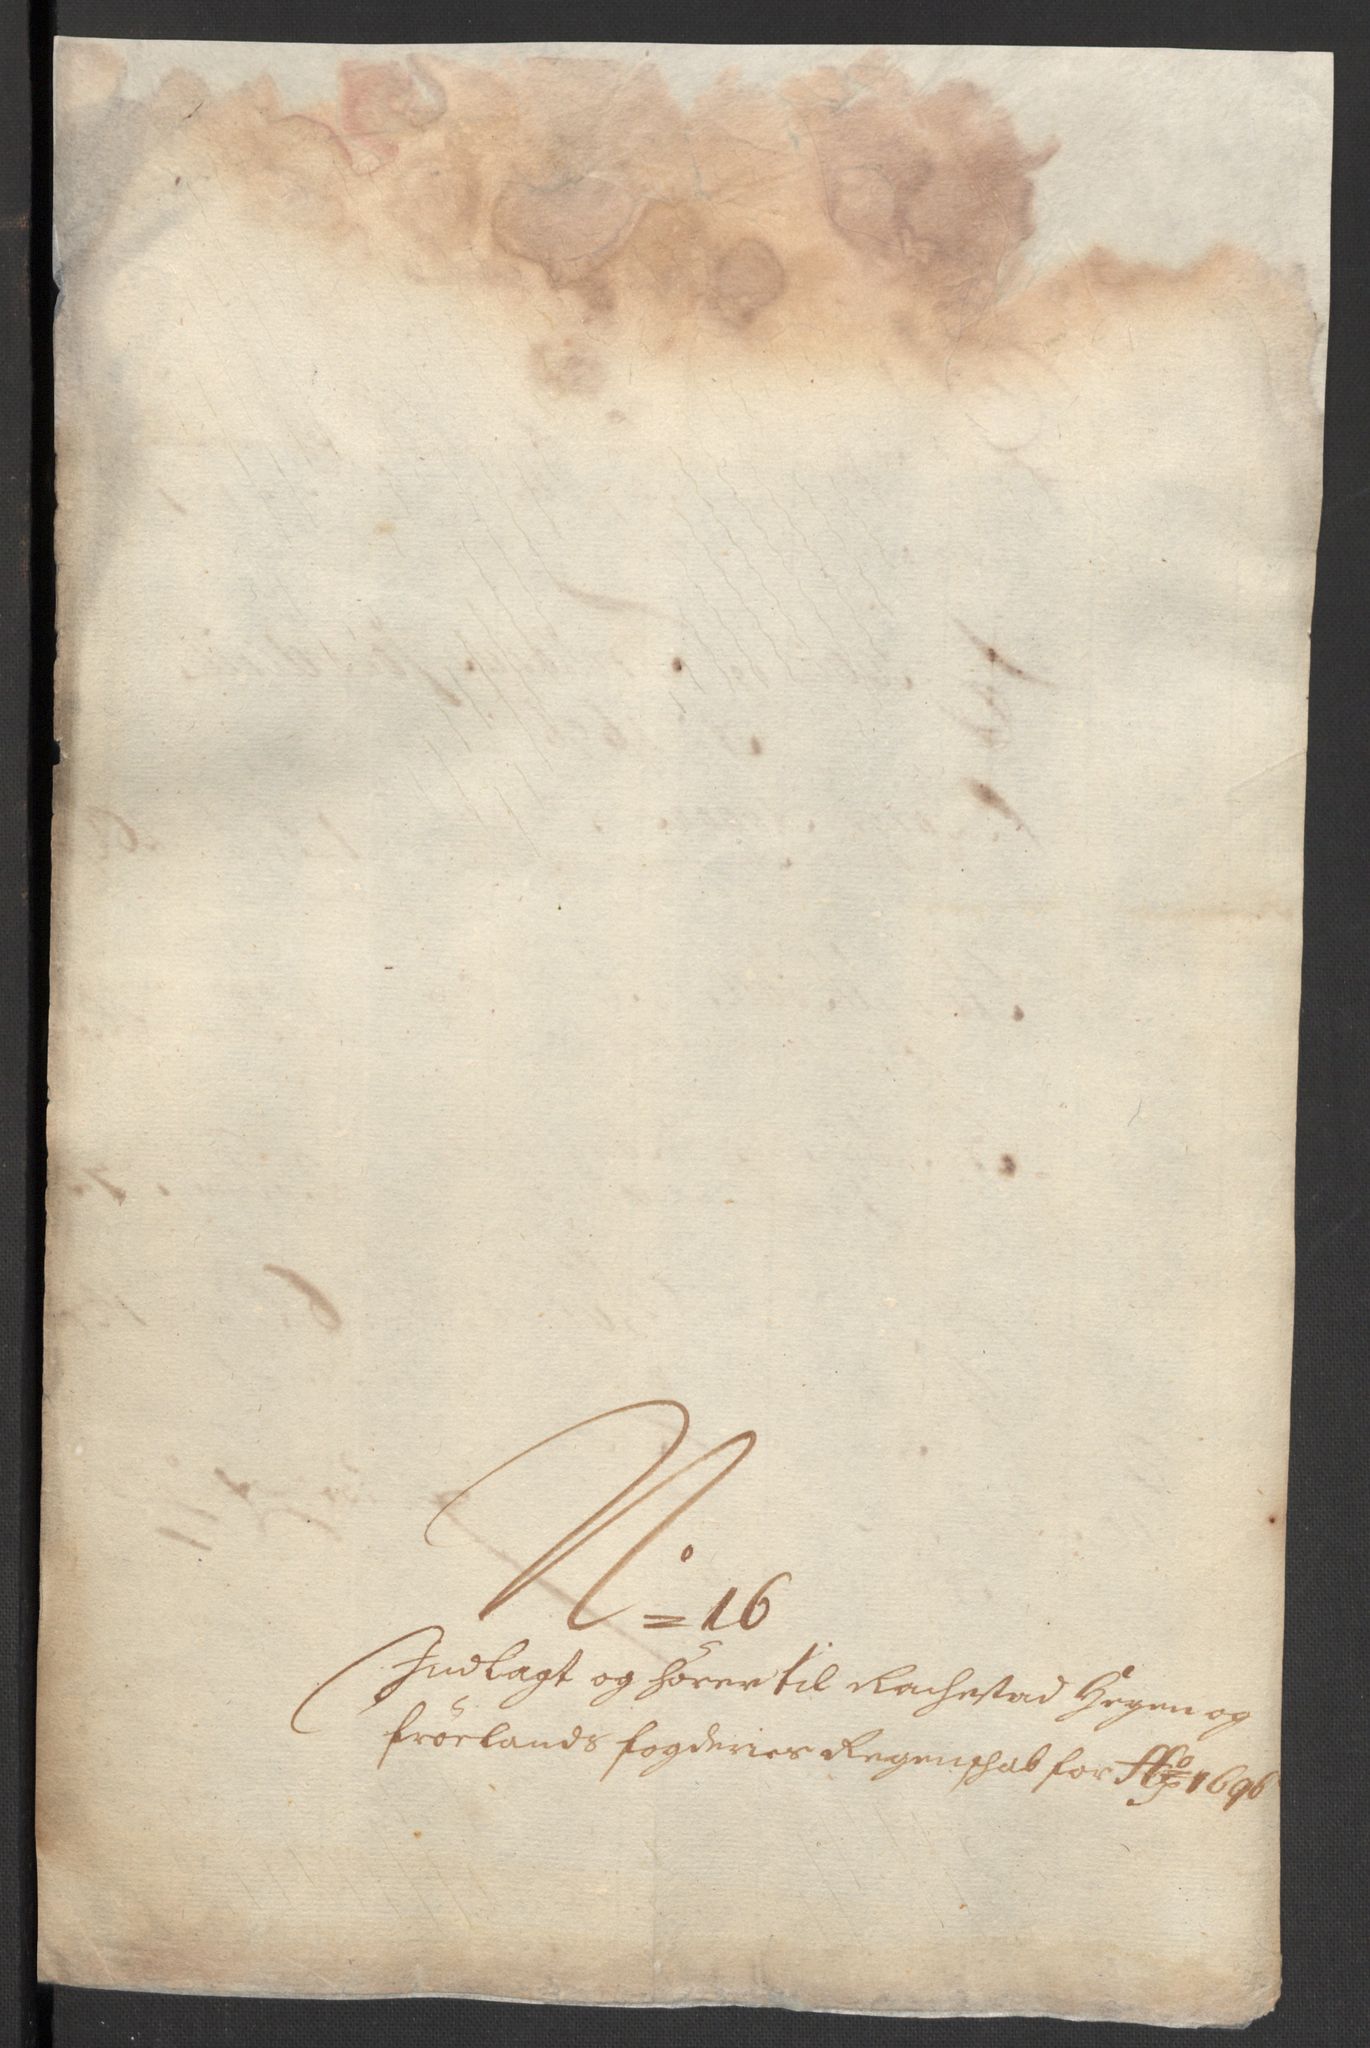 No = 16
Indlagt og hörer til Rachestad Heyen og
fröelands fogderies Regenschab for Ao 1696